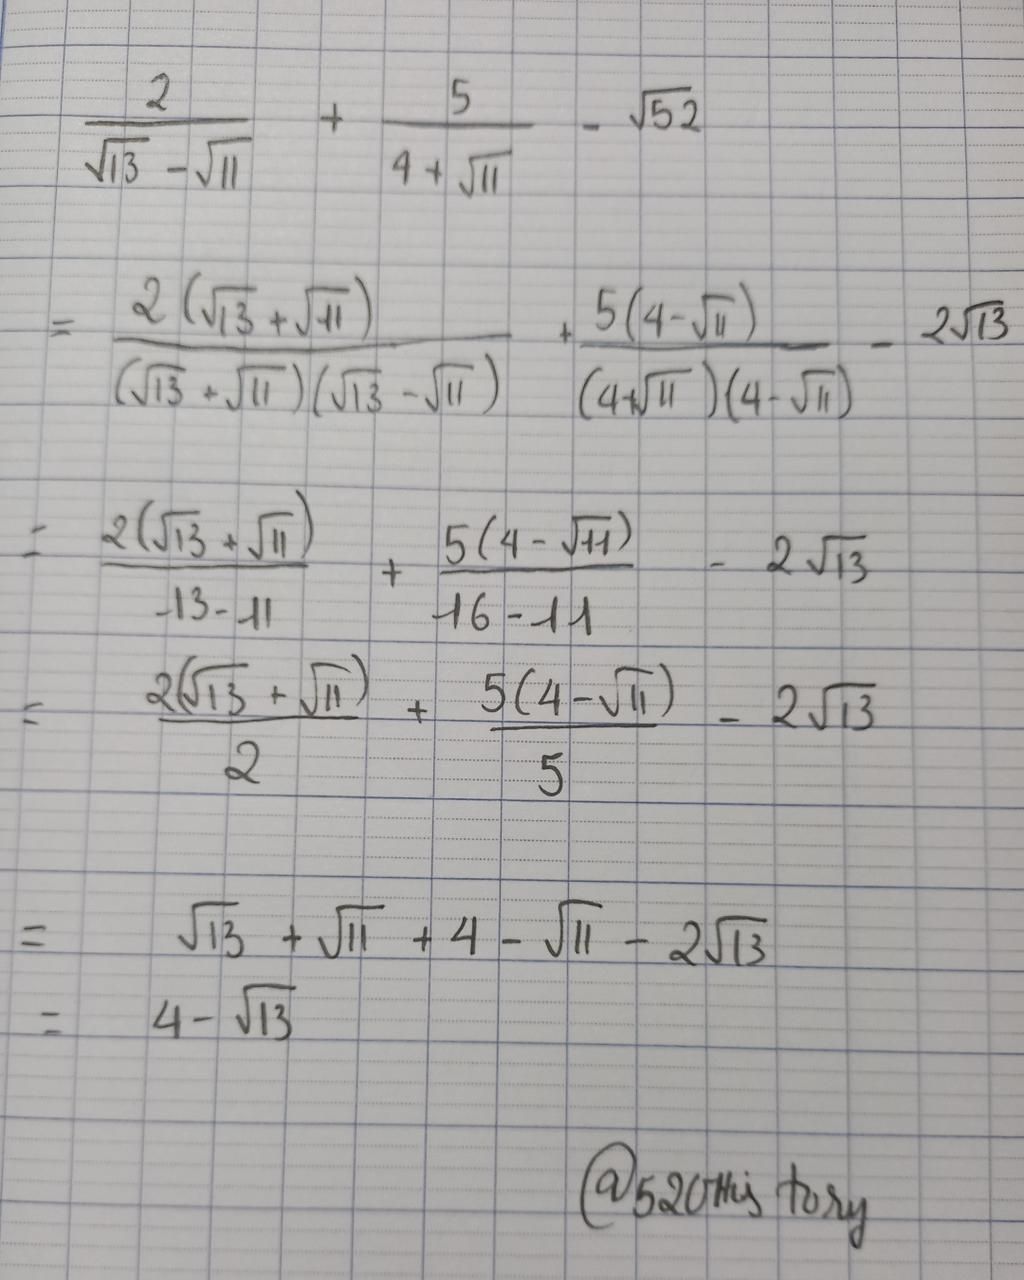 2/(√13 - √11) + 5/(4 + √11) - √52
= 2(√13 + √11)/((√13 + √11)(√13 - √11)) + 5(4 - √11)/((4+√11)(4 - √11)) - 2√13
= 2(√13 + √11)/(13 - 11) + 5(4 - √11)/(16 - 11) - 2√13
= 2(√13 + √11)/2 + 5(4 - √11)/5 - 2√13
= √13 + √11 + 4 - √11 - 2√13
= 4 - √13